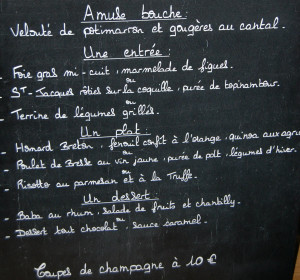 Amuse bouche :
Velouté de potimarron et gougères au cantal.
Une entrée :
- Foie gras mi-cuit, marmelade de figues.
ou
- St-Jacques rôties sur la coquille, purée de topinambour.
ou
- Terrine de légumes grillés.
Un plat :
- Homard Breton, fenouil confit à l'orange, quinoa aux agru
ou
- Poulet de Bresse au vin jaune, purée de pdt, légumes d'hiver.
ou
- Risotto au parmesan et à la Truffe.
Un dessert :
- Baba au rhum, salade de fruits et chantilly
ou
- Dessert tout chocolat, sauce caramel.
Coupes de champagne à 10 €